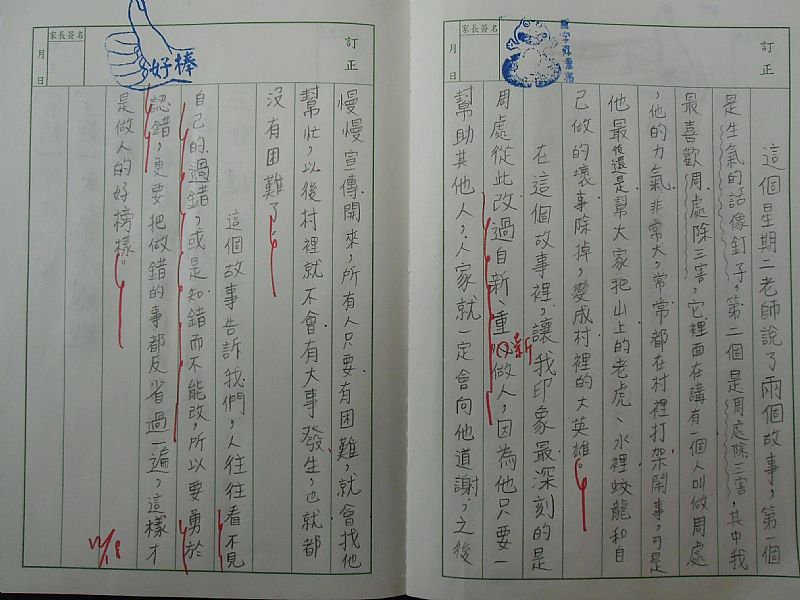 訂正
家長簽名
月 日
這個星期二老師說了兩個故事，第一個
是生氣的話像釘子，第二個是周處除三害，其中我
最喜歡周處除三害，它裡面在講有一個人叫做周處
，他的力氣非常大，常常都在村裡打架鬧事，可是
他最後還是幫大家把山上的老虎、水裡蛟龍和自
己做的壞事除掉，變成村裡的大英雄。
在這個故事裡，讓我印象最深刻的是
周處從此改過自新、重新做人，因為他只要一
幫助其他人，人家就一定會向他道謝，之後
訂正
家長簽名
月 日
好棒
慢慢宣傳開來，所有人只要有困難，就會找他
幫忙，以後村裡就不會有大事發生，也就都
沒有困難了。
這個故事告訴我們，人往往看不見
自己的過錯，或是知錯而不能改，所以要勇於
認錯，更要把做錯的事都反省過一遍，這樣才
是做人的好榜樣。